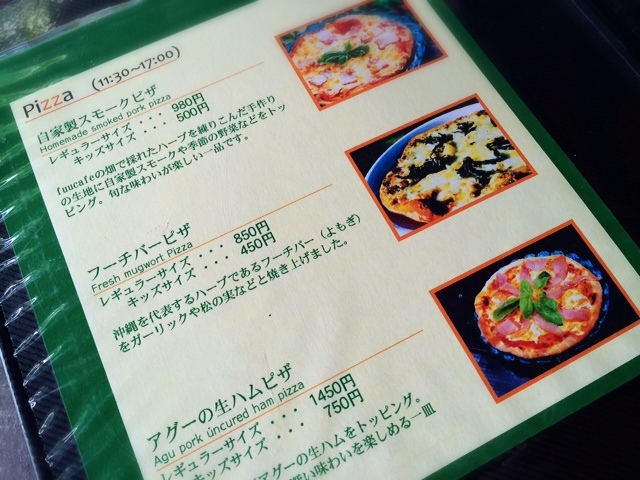 Pizza (11:30~17:00)
自家製スモークピザ
Homemade smoked pork pizza
レギュラーサイズ・・・980円
キッズサイズ・・・500円
fuucafeの畑で採れたハーブを練りこんだ手作り
の生地に自家製スモークや季節の野菜などをトッ
ピング。旬な味わいが楽しい一品です。
フーチバーピザ
Fresh mugwort Pizza
レギュラーサイズ・・・850円
キッズサイズ・・・450円
沖縄を代表するハーブであるフーチバー（よもぎ）
をガーリックや松の実などと焼き上げました。
アグーの生ハムピザ
Agu pork uncured ham pizza
レギュラーサイズ・・・1450円
キッズサイズ・・・750円
アグーの生ハムをトッピング。
深い味わいを楽しめる一皿